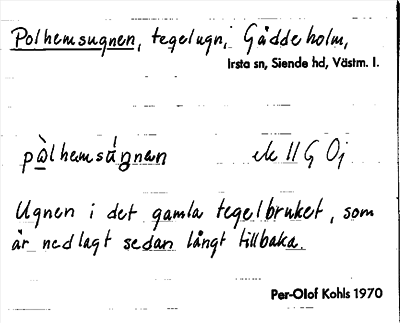 Polhemsugnen, tegelugn, Gäddeholm,
Irsta sn, Siende hd, Västm. l.
pòlhemsúŋnən ek 11 G Oj
Ugnen i det gamla tegelbruket, som
är nedlagt sedan långt tillbaka.
Per-Olof Kohls 1970